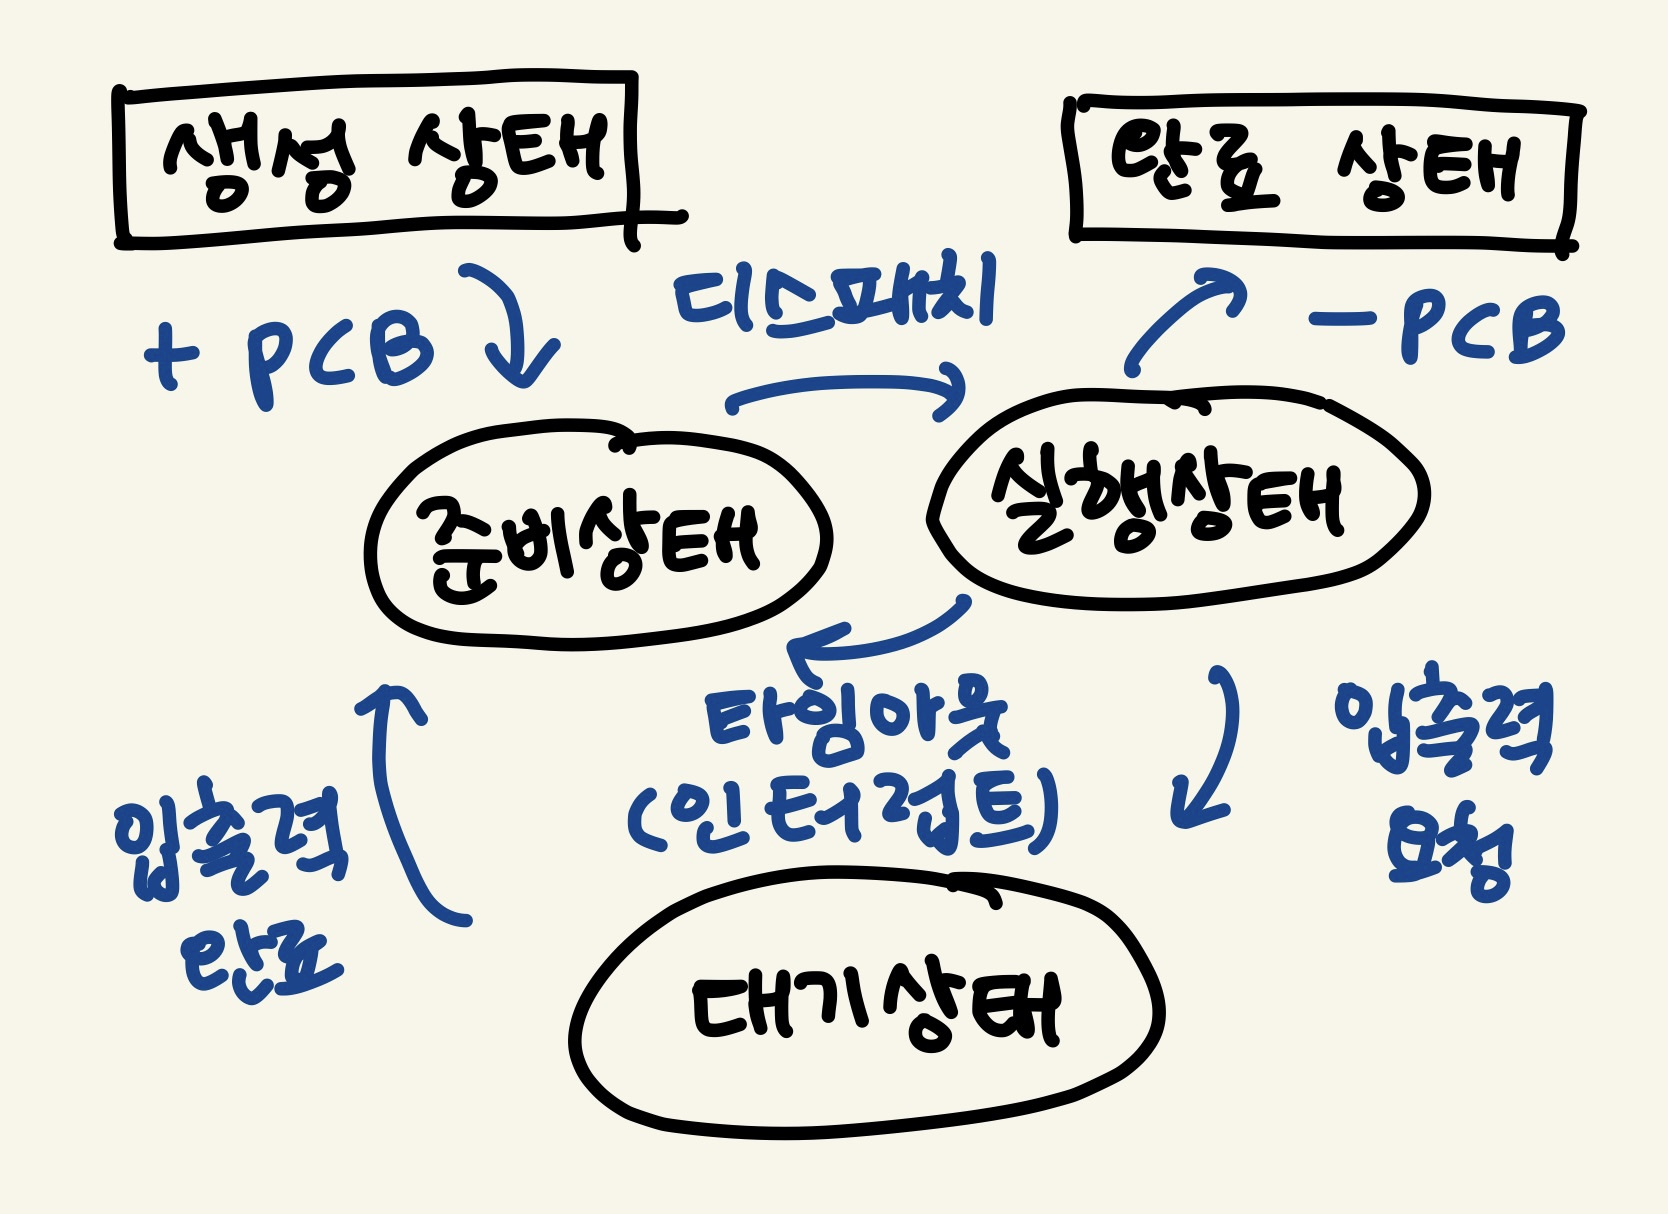 생성 상태
완료 상태
+ PCB
디스패치
- PCB
준비상태
실행상태
타임아웃
(인터럽트)
입출력
요청
입출력
완료
대기상태